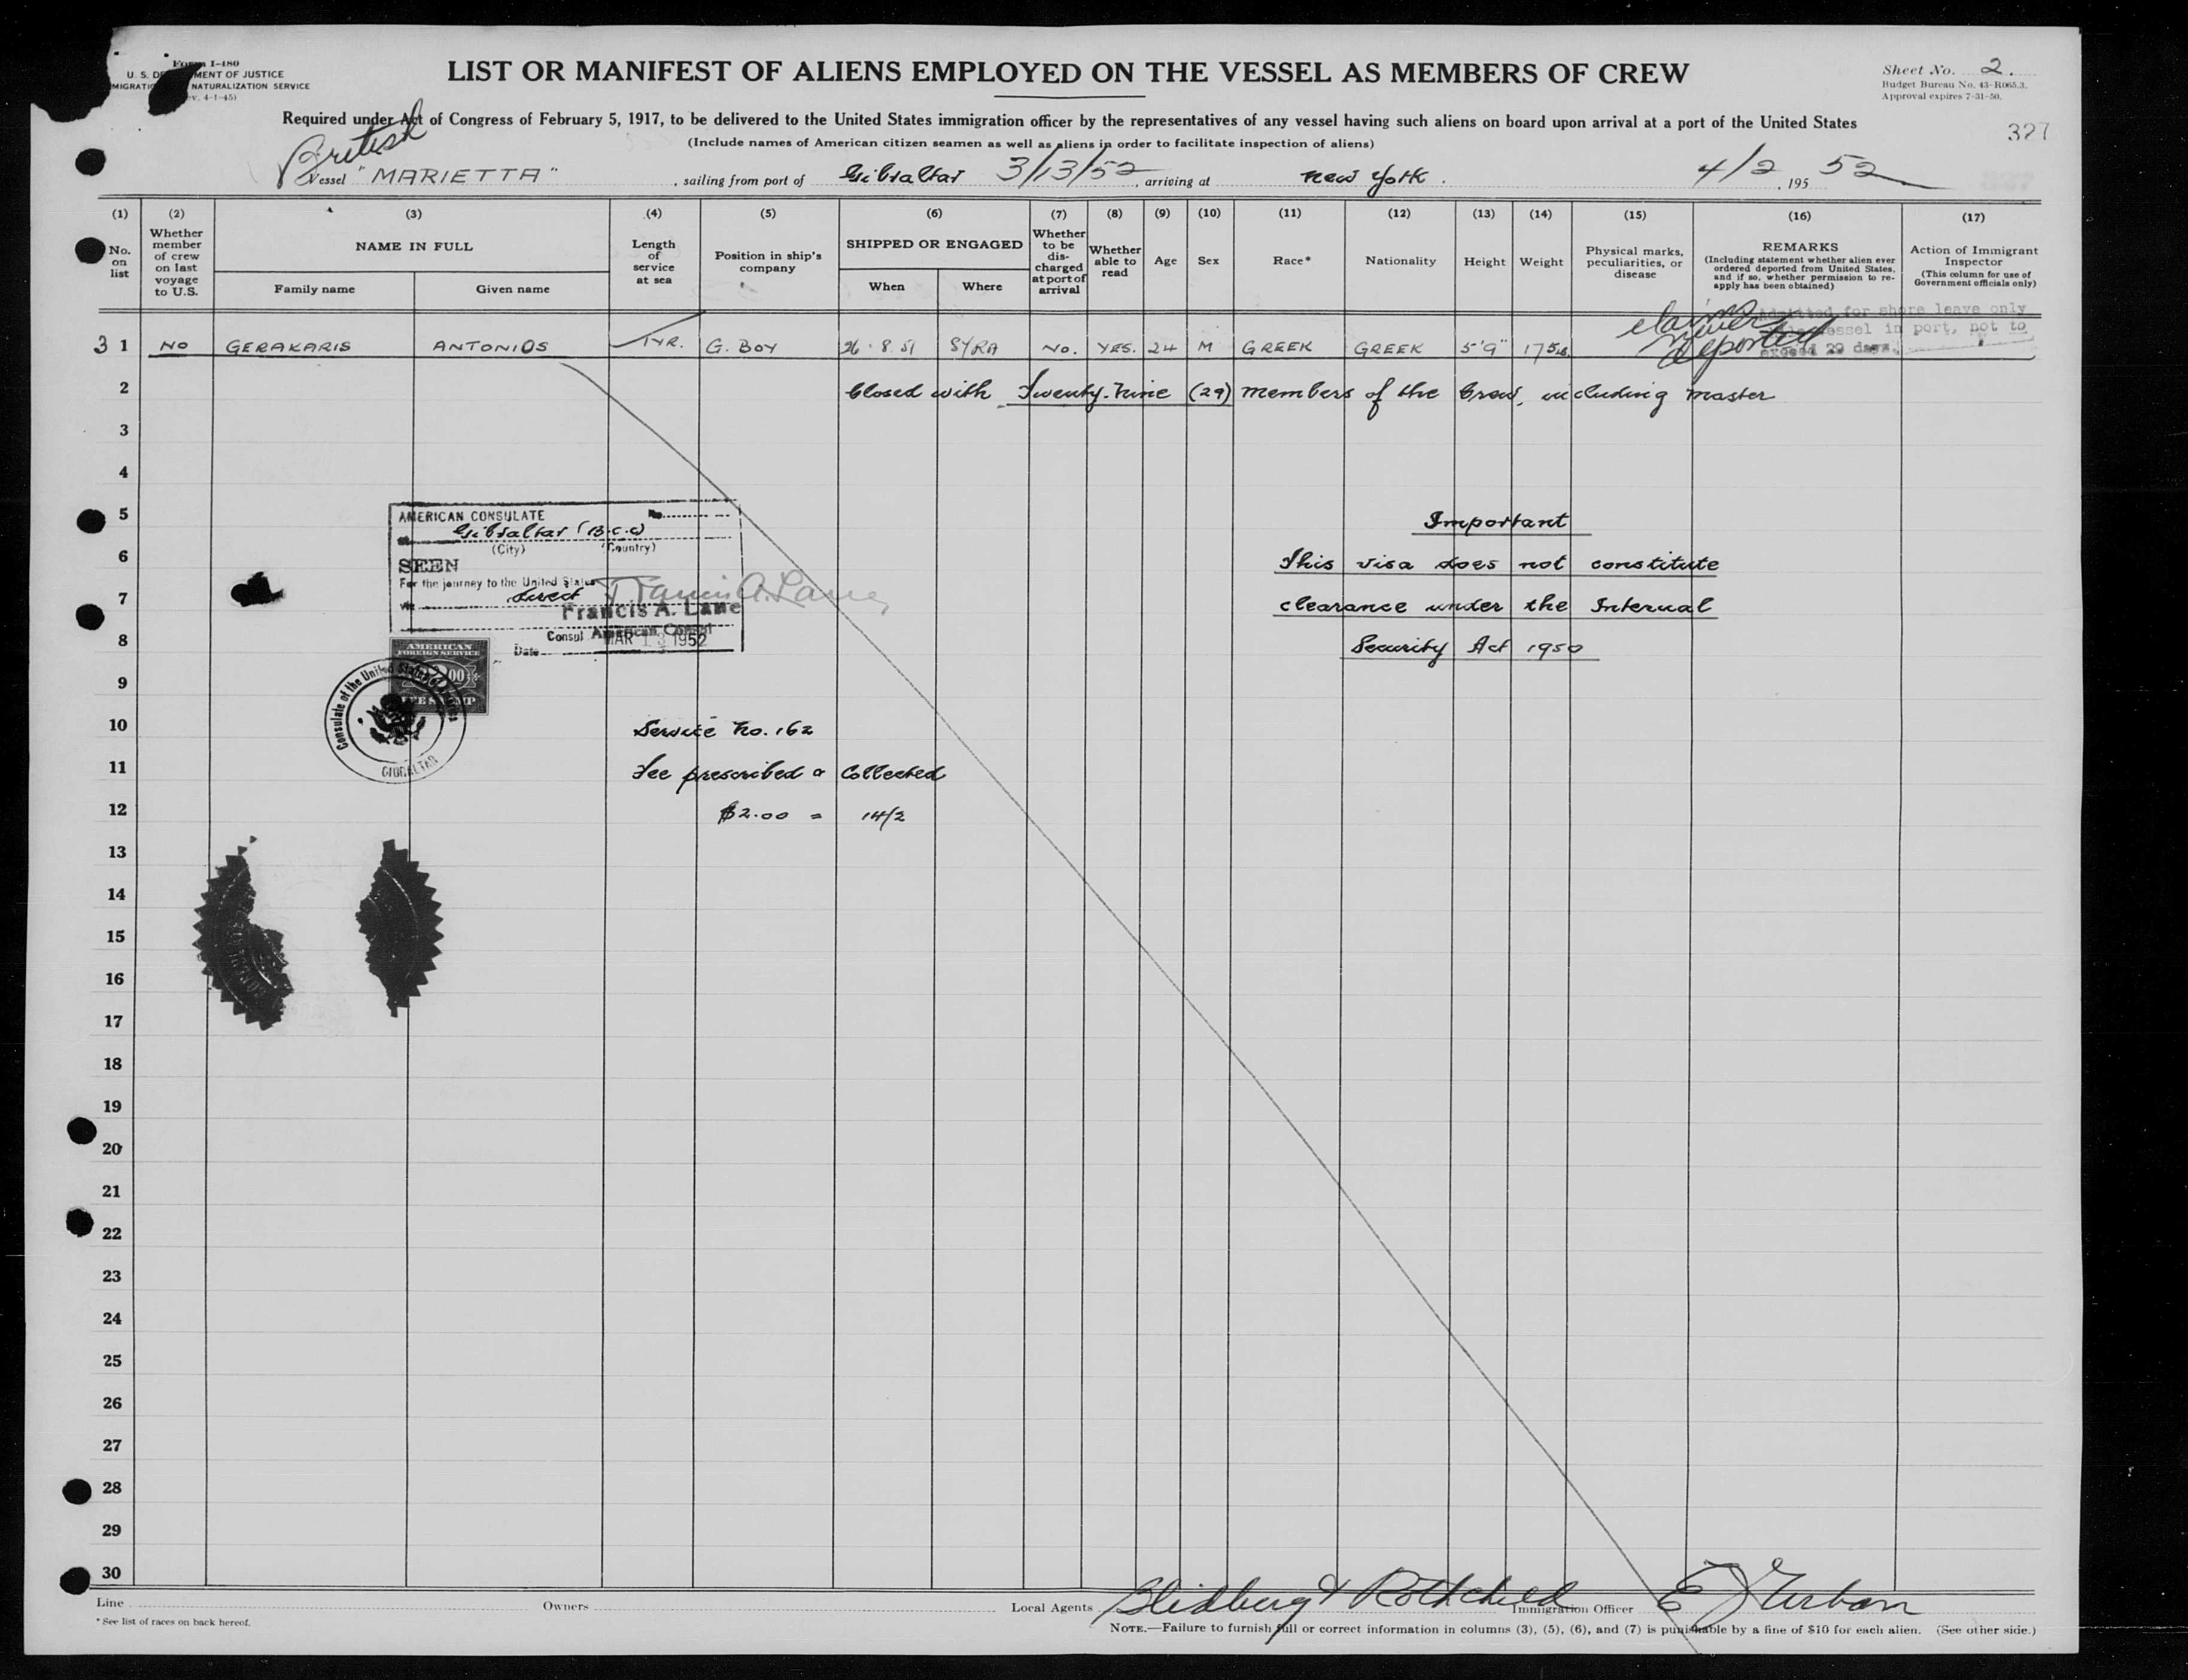 Form I-480
U. S. DEPARTMENT OF JUSTICE
IMMIGRATION NATURALIZATION SERVICE
(Rev. 4-1-45)
LIST OR MANIFEST OF ALIENS EMPLOYED ON THE VESSEL AS MEMBERS OF CREW
Sheet No. 2.
Budget Bureau No. 43-R065.3.
Approval expires 7-31-50.
Required under Act of Congress of February 5, 1917, to be delivered to the United States immigration officer by the representatives of any vessel having such aliens on board upon arrival at a port of the United States
327
(Include names of American citizen seamen as well as aliens in order to facilitate inspection of aliens)
British
Vessel "MARIETTA", sailing from port of Gibraltar 3/13/52, arriving at New York. 4/2, 195 52
(1) (2) (3) (4) (5) (6) (7) (8) (9) (10) (11) (12) (13) (14) (15) (16) (17)
No. on list
Whether member of crew on last voyage to U.S.
NAME IN FULL
Family name Given name
Length of service at sea
Position in ship's company
SHIPPED OR ENGAGED
When Where
Whether to be discharged at port of arrival
Whether able to read
Age
Sex
Race*
Nationality
Height
Weight
Physical marks, peculiarities, or disease
REMARKS
(Including statement whether alien ever ordered deported from United States, and if so, whether permission to re-apply has been obtained)
Action of Immigrant Inspector
(This column for use of Government officials only)
Admitted for shore leave only
vessel in port, not to
exceed 29 days.
claims never deported
3 1 NO GERAKARIS ANTONIOS 1YR. G. BOY 26.8.51 SYRA No. YES. 24 M GREEK GREEK 5'9" 175lb
2 Closed with Twenty-Nine (29) members of the Crew, including Master
3
4
5 Important
6 This visa does not constitute
7 clearance under the Internal
8 Security Act 1950
AMERICAN CONSULATE No.
at Gibraltar (B.C.C)
(City) (Country)
SEEN
For the journey to the United States
via direct
Francis A. Lane
Francis A. Lane
Consul American Consul
Date MAR 13 1952
AMERICAN
FOREIGN SERVICE
2.00
FEE STAMP
Consulate of the United States of America
GIBRALTAR
9
10 Service No. 162
11 Fee prescribed & Collected
12 $2.00 = 14/2
13
14
15
16
17
18
19
20
21
22
23
24
25
26
27
28
29
30
Line Owners Local Agents Blidberg & Rothchild Immigration Officer E J Urban
* See list of races on back hereof.
NOTE.—Failure to furnish full or correct information in columns (3), (5), (6), and (7) is punishable by a fine of $10 for each alien. (See other side.)